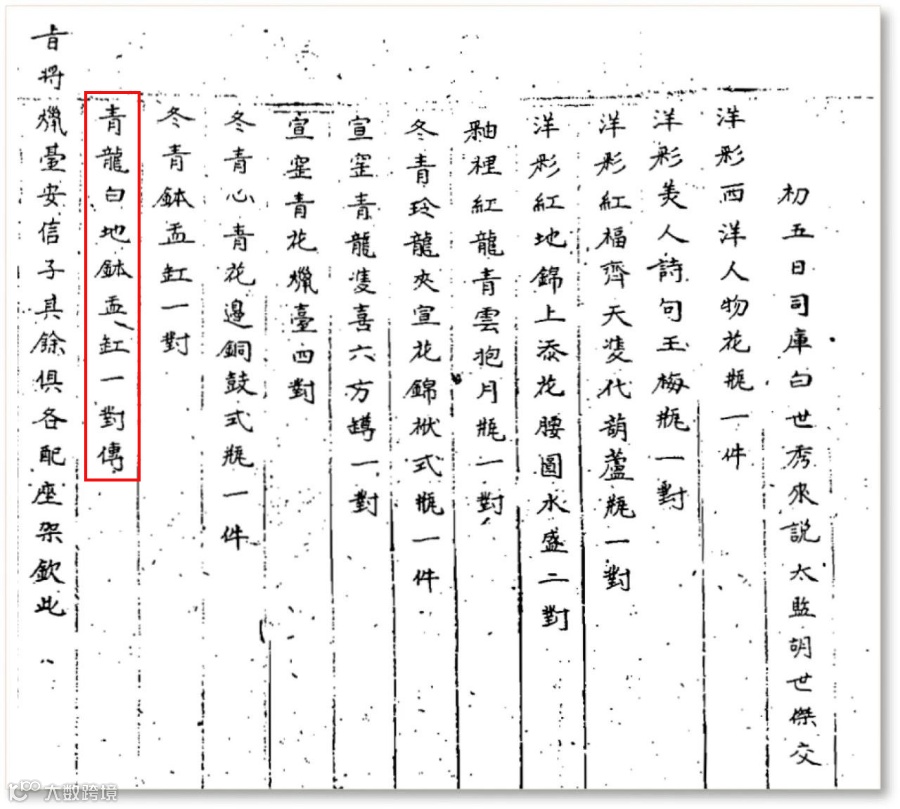 初五日司庫白世秀來說太監胡世傑交
洋彩西洋人物花瓶一件
洋彩美人詩句玉梅瓶一對
洋彩紅福齊天雙代葫蘆瓶一對
洋彩紅地錦上添花腰圓水盛二對
釉裡紅龍青雲抱月瓶一對
冬青玲龍夾宣花錦袱式瓶一件
宣窑青龍雙喜六方罇一對
宣窑青花蠟臺四對
冬青心青花邊銅鼓式瓶一件
冬青鉢盂缸一對
青龍白地鉢盂缸一對傳
旨將蠟臺安信子其餘俱各配座架欽此
大数跨境